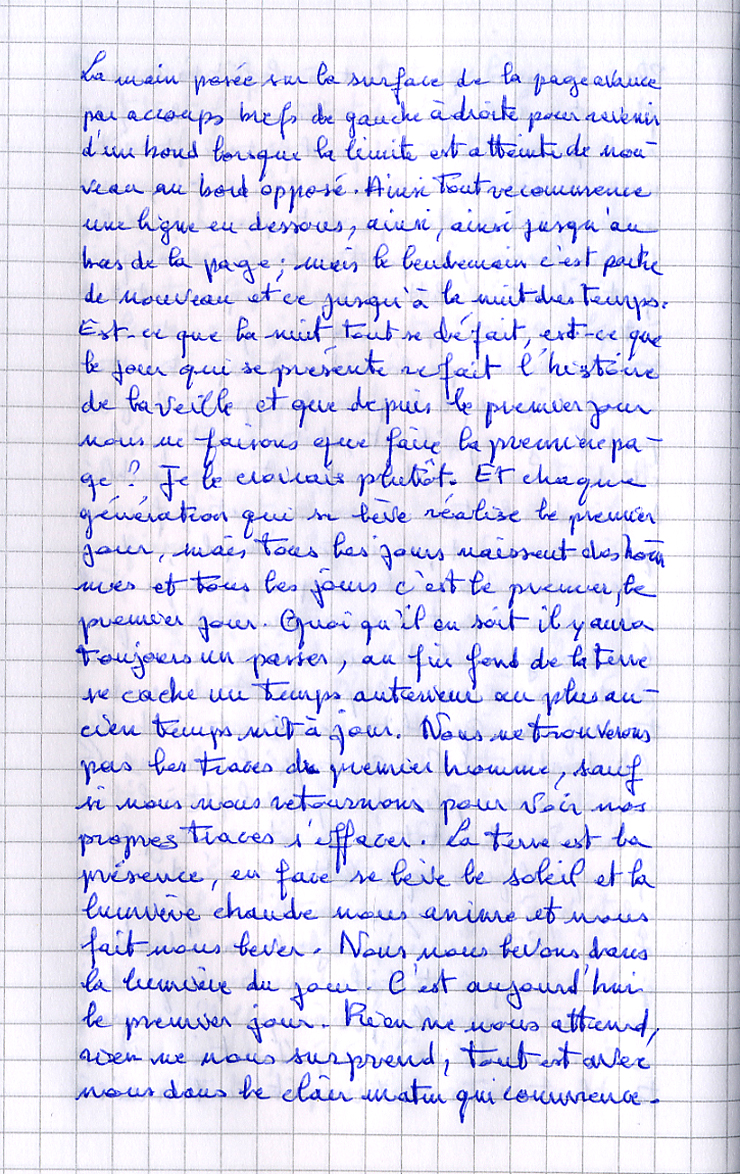 La main posée sur la surface de la page avance
par accoups brefs de gauche à droite pour revenir
d'un bond lorsque la limite est atteinte de nou-
veau au bord opposé. Ainsi tout recommence
une ligne en dessous, ainsi, ainsi jusqu'au
bas de la page ; mais le lendemain c'est partie
de nouveau et ce jusqu'à la nuit des temps.
Est-ce que la nuit tout se défait, est-ce que
le jour qui se présente refait l'histoire
de la veille et que depuis le premier jour
nous ne faisons que faire la première pa-
ge ? Je le croirais plutôt. Et chaque
génération qui se lève réalise le premier
jour, mais tous les jours naissent des hom
mes et tous les jours c'est le premier, le
premier jour. Quoi qu'il en soit il y aura
toujours un passer, au fin fond de la terre
se cache un temps antérieur au plus an-
cien temps mit à jour. Nous ne trouverons
pas les traces du premier homme, sauf
si nous nous retournons pour voir nos
propres traces s'effacer. La terre est la
présence, en face se lève le soleil et la
lumière chaude nous anime et nous
fait nous lever. Nous nous levons dans
la lumière du jour. C'est aujourd'hui
le premier jour. Rien ne nous attend,
rien ne nous surprend, tout est avec
nous dans le clair matin qui commence.